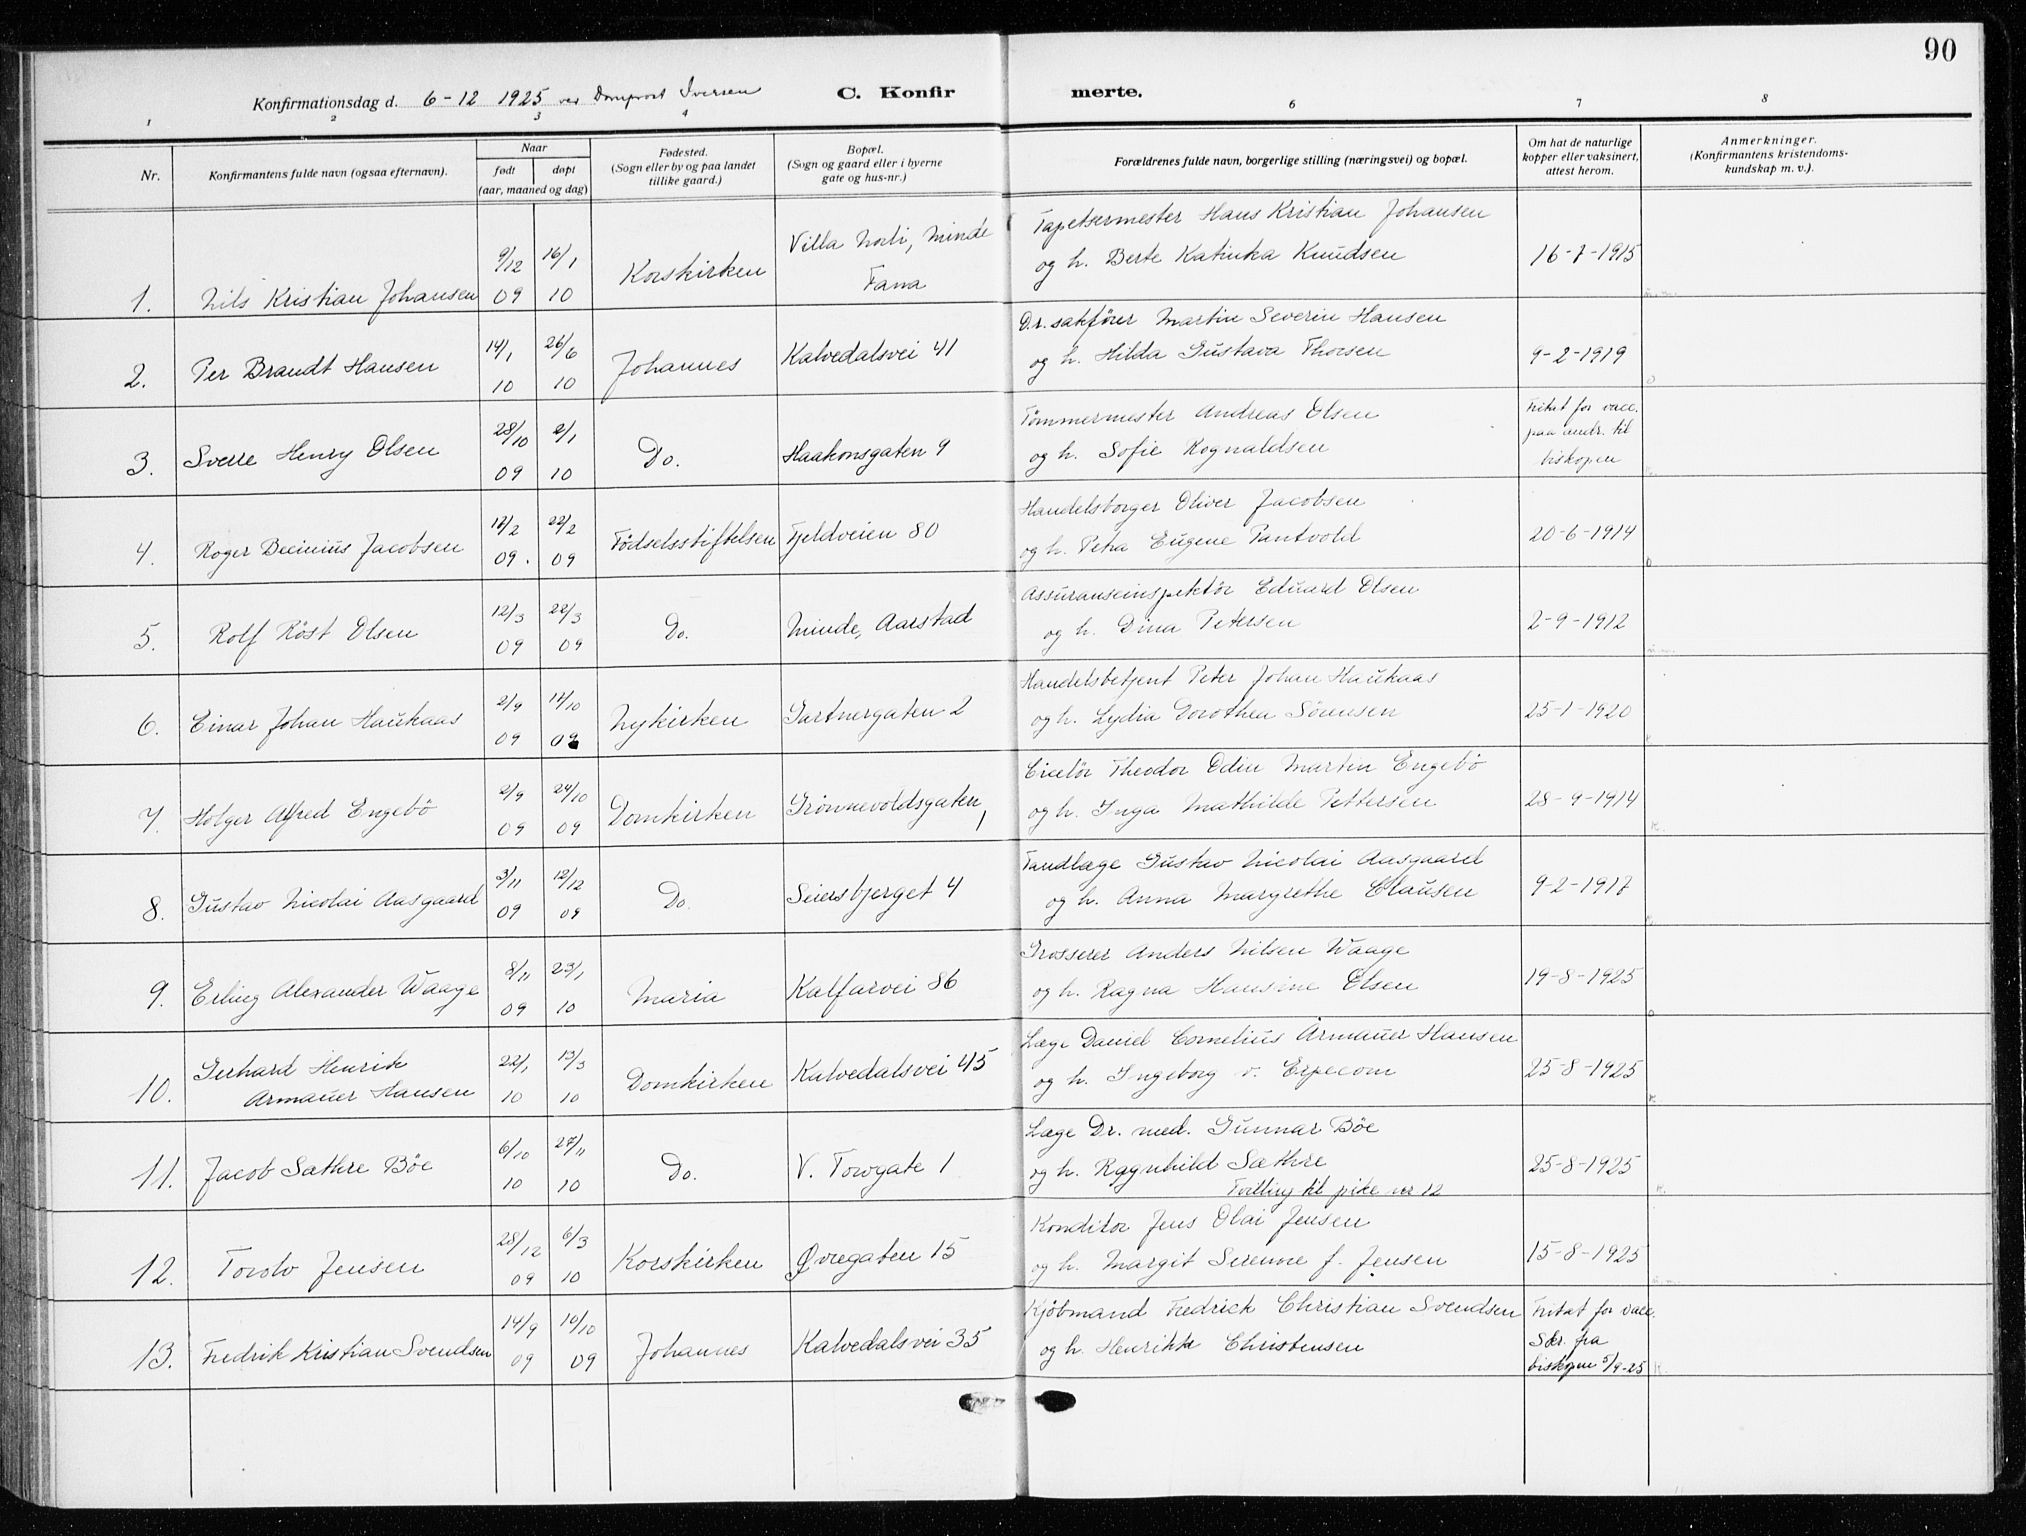 90
Konfirmationsdag d. 6-12 1925 ved Domprost Iversen C. Konfirmerte.
1 2 3 4 6 7 8
Nr.
Konfirmantens fulde navn (ogsaa efternavn).
Naar
født døpt
(aar, maaned og dag)
Fødested.
(Sogn eller by og paa landet
tillike gaard.)
Bopæl.
(Sogn og gaard eller i byerne
gate og hus-nr.)
Forældrenes fulde navn, borgerlige stilling (næringsvei) og bopæl.
Om hat de naturlige
kopper eller vaksinert,
attest herom.
Anmerkninger.
(Konfirmantens kristendoms-
kundskap m. v.).
1. Nils Kristian Johansen 9/12 09 16/1 10 Korskirken
Villa Norli, Minde
Fana
Tapetsermester Hans Kristian Johansen
og h. Berte Katinka Knudsen
16-7-1915
2. Per Brandt Hansen 14/1 10 26/6 10 Johannes Kalvedalsvei 41
O.r. sakfører Martin Severin Hansen
og h. Hilda Gustava Thorsen
9-2-1919
3. Sverre Henry Olsen 28/10 09 2/1 10 Do. Haakonsgaten 9
Tømmermester Andreas Olsen
og h. Sofie Rognaldsen
Fritat for vacc.
paa andr. til
biskopen
4. Roger Jacobsen 12/2 09. 22/2 09 Fødselsstiftelsen Fjeldveien 80
Handelsborger Oliver Jacobsen
og h. Petra Eugene
20-6-1914
5. Rolf Røst Olsen 12/3 09 22/3 09 Do. Minde, Aarstad
Assuranseinspektør Eduard Olsen
og h. Dina Petersen
2-9-1912
6. Einar Johan Haukaas 2/9 09 14/10 09 Nykirken Gartnergaten 2
Handelsbetjent Peter Johan Haukaas
og h. Lydia Dorothea Sørensen
25-1-1920
7. Holger Alfred Engebø 2/9 09 24/10 09 Domkirken Grønnevoldsgaten 1
Theodor Odin Martin Engebø
og h. Inga Mathilde Pettersen
28-9-1914
8. Gustav Nicolai Aasgaard 3/11 09 12/12 09 Do. Seiersbjerget 4
Tandlæge Gustav Nicolai Aasgaard
og h. Anna Margrethe Clausen
9-2-1917
9. Erling Alexander Waage 8/11 09 23/1 10 Maria Kalfarvei 86
Grosserer Anders Nilsen Waage
og h. Ragna Hansine Olsen
19-8-1925
10. Gerhard Henrik
Armauer Hansen 22/1 10 13/3 10 Domkirken Kalvedalsvei 45
Læge Daniel Cornelius Armauer Hansen
og h. Ingeborg v. Erpecom
25-8-1925
11. Jacob Sæthre Bøe 6/10 10 27/11 10 Do. V. Torvgate 1
Læge Dr. med. Gunnar Bøe
og h. Ragnhild Sæthre
Tvilling til pike nr 12
25-8-1925
12. Tordv Jensen 28/12 09 6/3 10 Korskirken Øvregaten 15
Konditor Jens Olai Jensen
og h. Margit f. Jensen
15-8-1925
13. Fredrik Kristian Svendsen 14/9 09 10/10 09 Johannes Kalvedalsvei 35
Kjøbmand Fredrick Christian Svendsen
og h. Henrikke Christensen
Fritat for vacc.
Skr. fra
biskopen 5/9-25